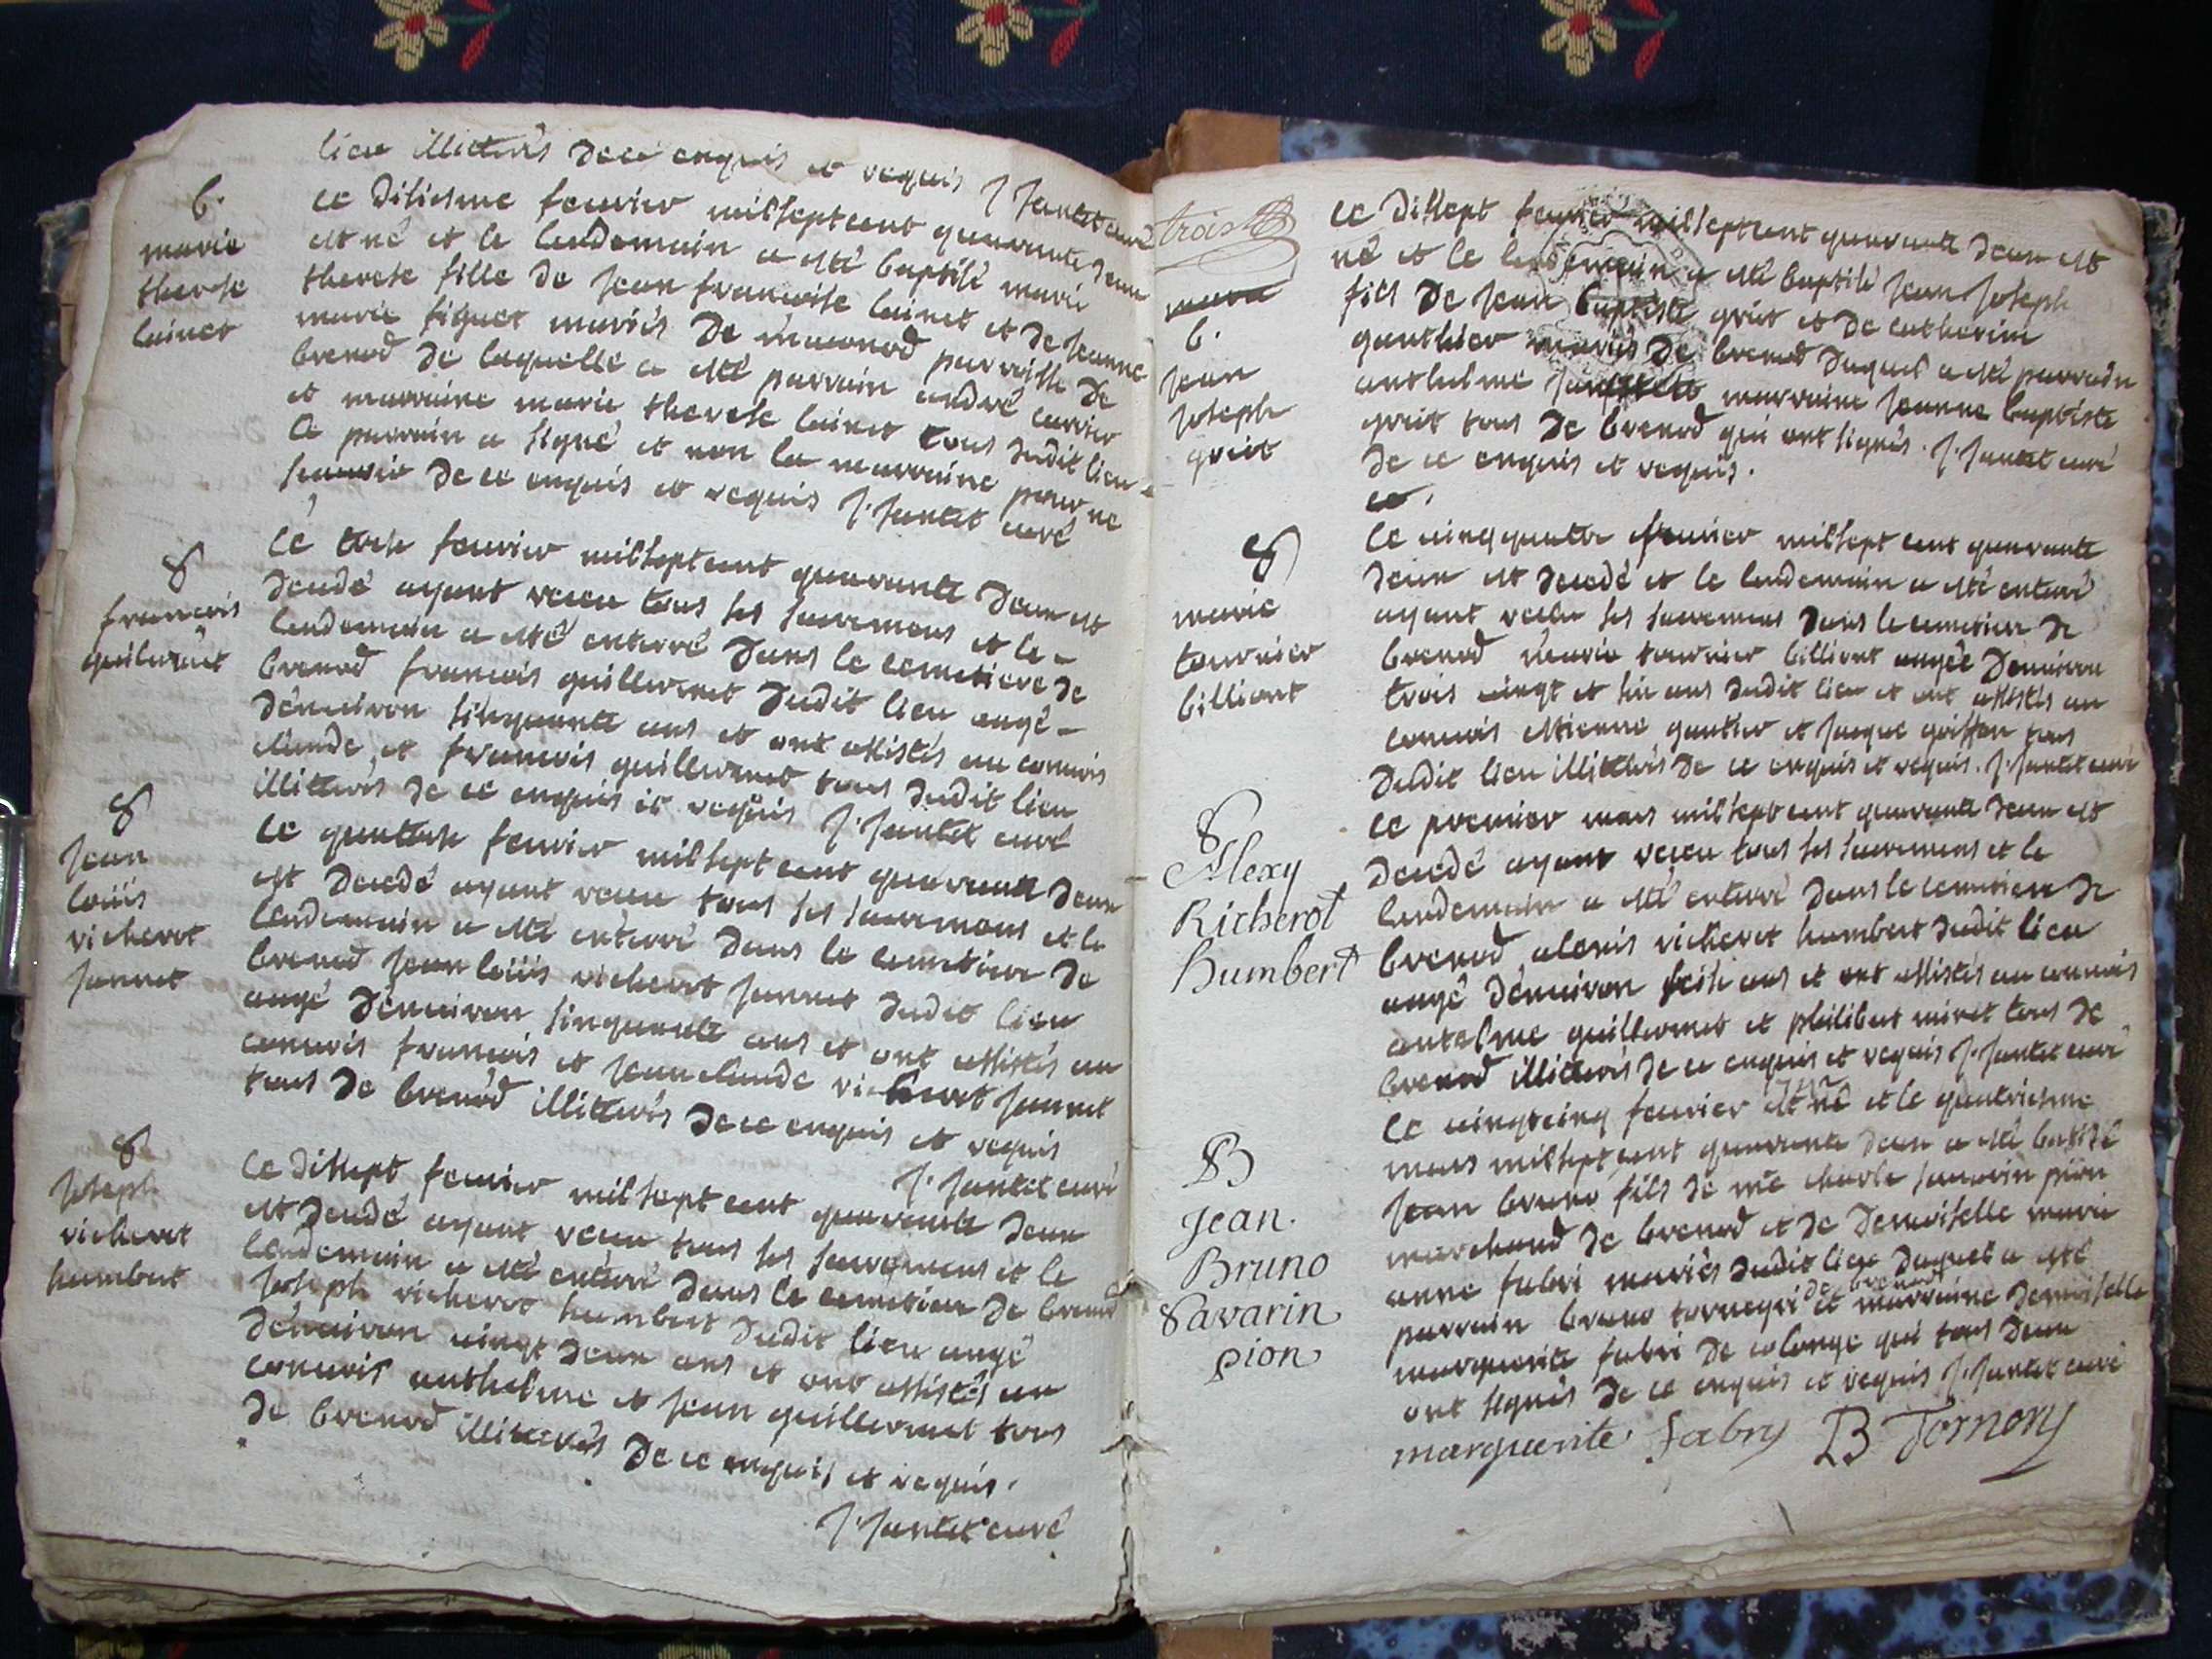 lieu illitterés de ce enquis et requis J. Jantet curé
b.
marie
therese
cuinet
le disiesme feuvrier milsept cent quarante deux
est né et le lendemain a esté baptisé marie
therese fille de jean francoise cuinet et de jeanne
marie fiquet mariés de macornod parroisse de
brenod de laquelle a esté parrain andré carrier
et marraine marie therese cuinet tous dudit lieu
le parrain a signé et non la marraine pour ne
scavoir de ce enquis et requis J. Jantet curé
S
francois
guilermet
le treise feuvrier milsept cent quarante deux est
decedé ayant receu tous ses sacremens et le
lendemain a esté enterré dans le cemetiere de
brenod francois guillermet dudit lieu aagé
d'enuiron sinquante ans et ont assistés au conuois
claude et francois guillermet tous dudit lieu
illitterés de ce enquis et requis J. Jantet curé
S
jean
loüis
richeret
jannet
le quatorse feuvrier milsept cent quarante deux
est decedé ayant receu tous ses sacremens et le
lendemain a esté enterré dans le cemetiere de
brenod jean loüis richeret jannet dudit lieu
aagé d'enuiron sinquante ans et ont assistés au
conuois francois et jean claude richeret jannet
tous de brenod illitterés de ce enquis et requis
J. Jantet curé
S
joseph
richeret
humbert
le dissept feuvrier milsept cent quarante deux
est decedé ayant receu tous ses sacremens et le
lendemain a esté enterré dans le cemetiere de brenod
joseph richeret humbert dudit lieu aagé
d'enuiron uingt deux ans et ont assistés au
conuois anthelme et jean guillermet tous
de brenod illitterés de ce enquis et requis.
J. Jantet curé
trois
b.
jean
joseph
griot
le dissept feuvrier milsept cent quarante deux est
né et le lendemain a esté baptisé jean joseph
fils de jean baptiste griot et de catherine
gauthier mariés de brenod duquel a esté parrain
anthelme marraine jeanne baptiste
griot tous de brenod qui ont signés. J. Jantet curé
de ce enquis et requis.
S
marie
tournier
billiont
le uingquatre feuvrier milsept cent quarante
deux est decedé et le lendemain a esté enterré
ayant receu ses sacremens dans le cemetiere de
brenod marie tournier billiont aagée d'enuiron
trois uingt et six ans dudit lieu et ont assistés au
conuois estienne gautier et jacque griffon tous
dudit lieu illitterés de ce enquis et requis. J. Jantet curé
S
Alexy
Richerot
humbert
le premier mars milsept cent quarante deux est
decedé ayant receu tous ses sacremens et le
lendemain a esté enterré dans le cemetiere de
brenod alexis richeret humbert dudit lieu
aagé d'enuiron seise ans et ont assistés au conuois
antelme guillermet et philibert miret tous de
brenod illitterés de ce enquis et requis J. Jantet curé
B
Jean.
Bruno
Savarin
pion
le uingtcinq feuvrier est né et le quatriesme
mars milsept cent quarante deux a esté batisé
jean bruno fils de me charle sauarin pion
marchand de brenod et de demoiselle marie
anne fabri mariés dudit lieu duquel a esté
parrain bruno torneyri de brenod et marraine demoiselle
marguerite fabri de colonge qui tous deux
ont signés de ce enquis et requis J. Jantet curé
marguerite fabry B Tornory